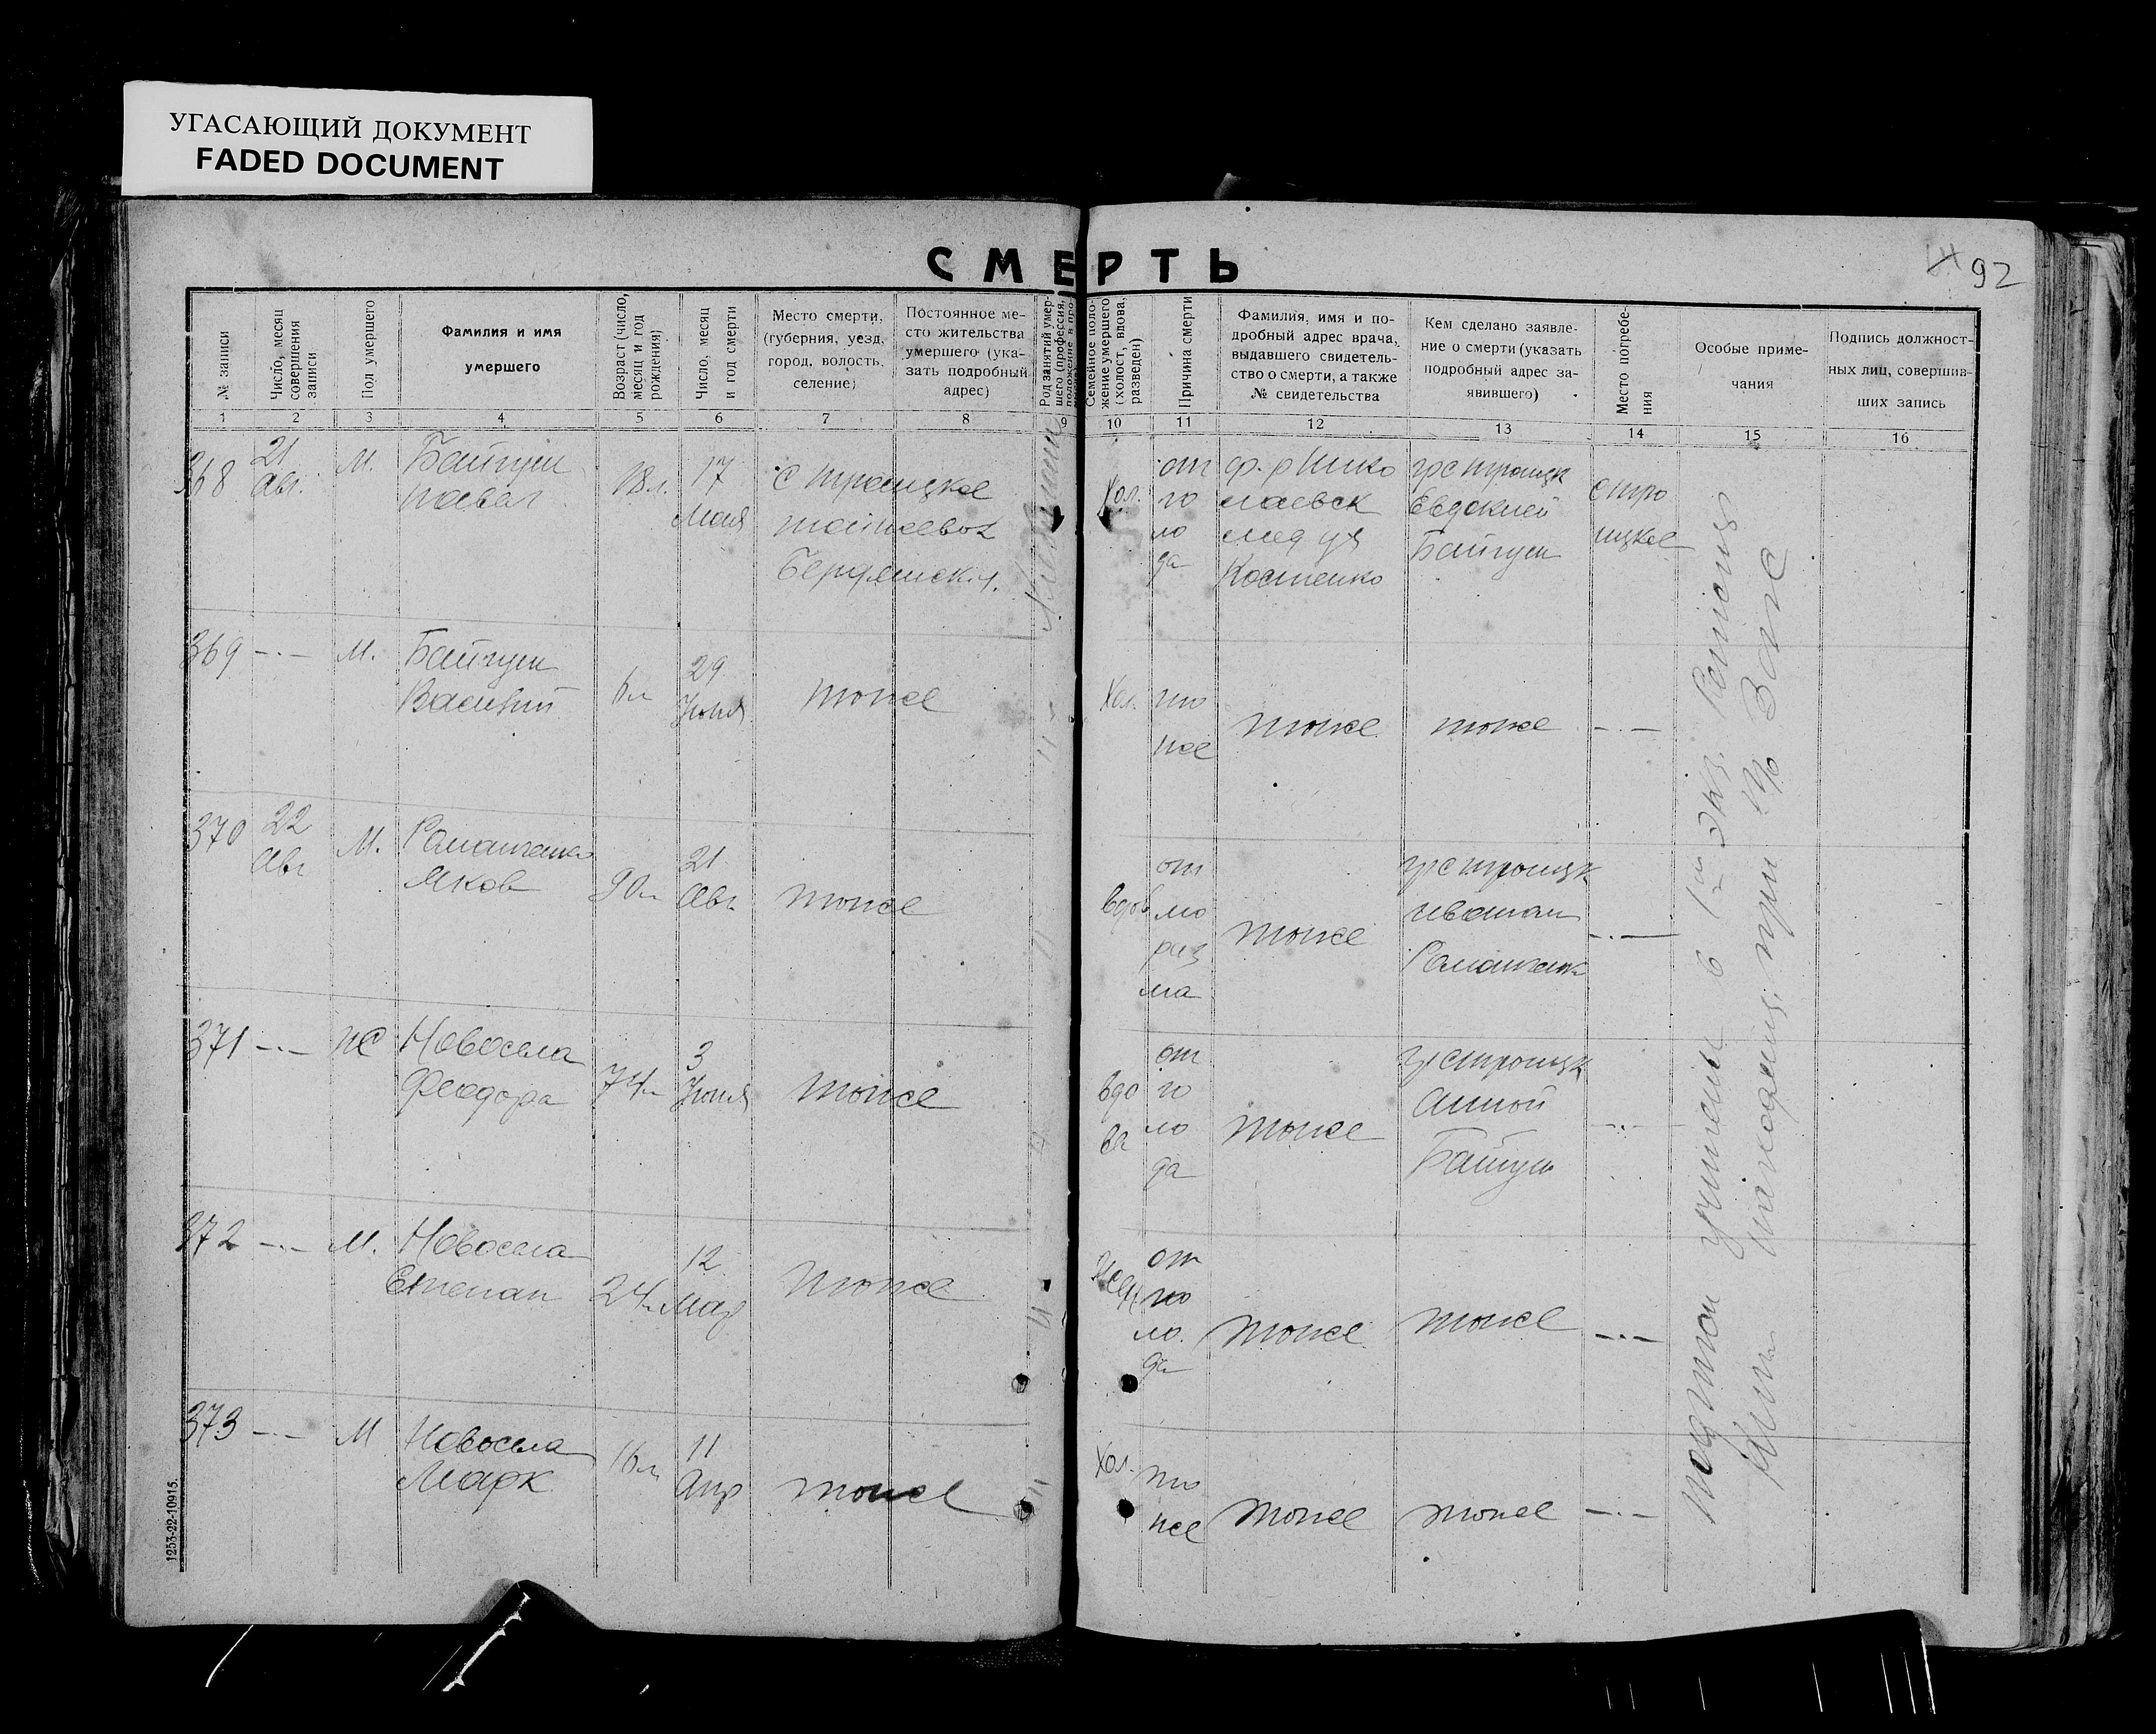 УГАСАЮЩИЙ ДОКУМЕНТ
FADED DOCUMENT
СМЕРТЬ
92
№ записи
Число, месяц
совершения
записи
Пол умершего
Фамилия и имя
умершего
Возраст (число,
месяц и год
рождения)
Число, месяц
и год смерти
Место смерти,
(губерния, уезд,
город, волость,
селение)
Постоянное ме-
сто жительства
умершего (ука-
зать подробный
адрес)
Род занятий умер-
шего (профессия,
положение в про-
Семейное поло-
жение умершего
(холост, вдова,
разведен)
Причина смерти
Фамилия, имя и по-
дробный адрес врача,
выдавшего свидетель-
ство о смерти, а также
№ свидетельства
Кем сделано заявле-
ние о смерти (указать
подробный адрес за-
явившего)
Место погребе-
ния
Особые приме-
чания
Подпись должност-
ных лиц, совершив-
ших запись
1 2 3 4 5 6 7 8 9 10 11 12 13 14 15 16
368
21
Авг.
М.
Байгуш
Павел
18 л.
17
Мая
с Троицкое
Бердянск у.
Хол.
от
го
ло
да
Нико
лаевск
Костенко
гр с Троицк
Евдокией
Байгуш
с Тро
ицкое
369 -·-
М.
Байгуш
Василий
6 л
29
Июня
тоже
Хол.
то
же
тоже
тоже
-·-
370
22
Авг
М.
Романченко
Яков
90 л
21
Авг.
тоже
вдов
от
ма
раз
ма
тоже
гр с Троицк
Иваном
Романченк
-·-
371 -·-
Ж
Новосела
Феодора
74 л
3
Июня
тоже
вдо
ва
от
го
ло
да
тоже
гр с Троицк
Анной
Байгуш
-·-
372 -·-
М.
Новосела
Степан
24 л
12
Мар
тоже
от
го
ло.
да
тоже
тоже
-·-
373 -·-
М
Новосела
Марк
16 л
11
Апр
тоже
Хол.
то
же
тоже
тоже
-·-
в 1м экз.
при
Загс
1253-22-10915.